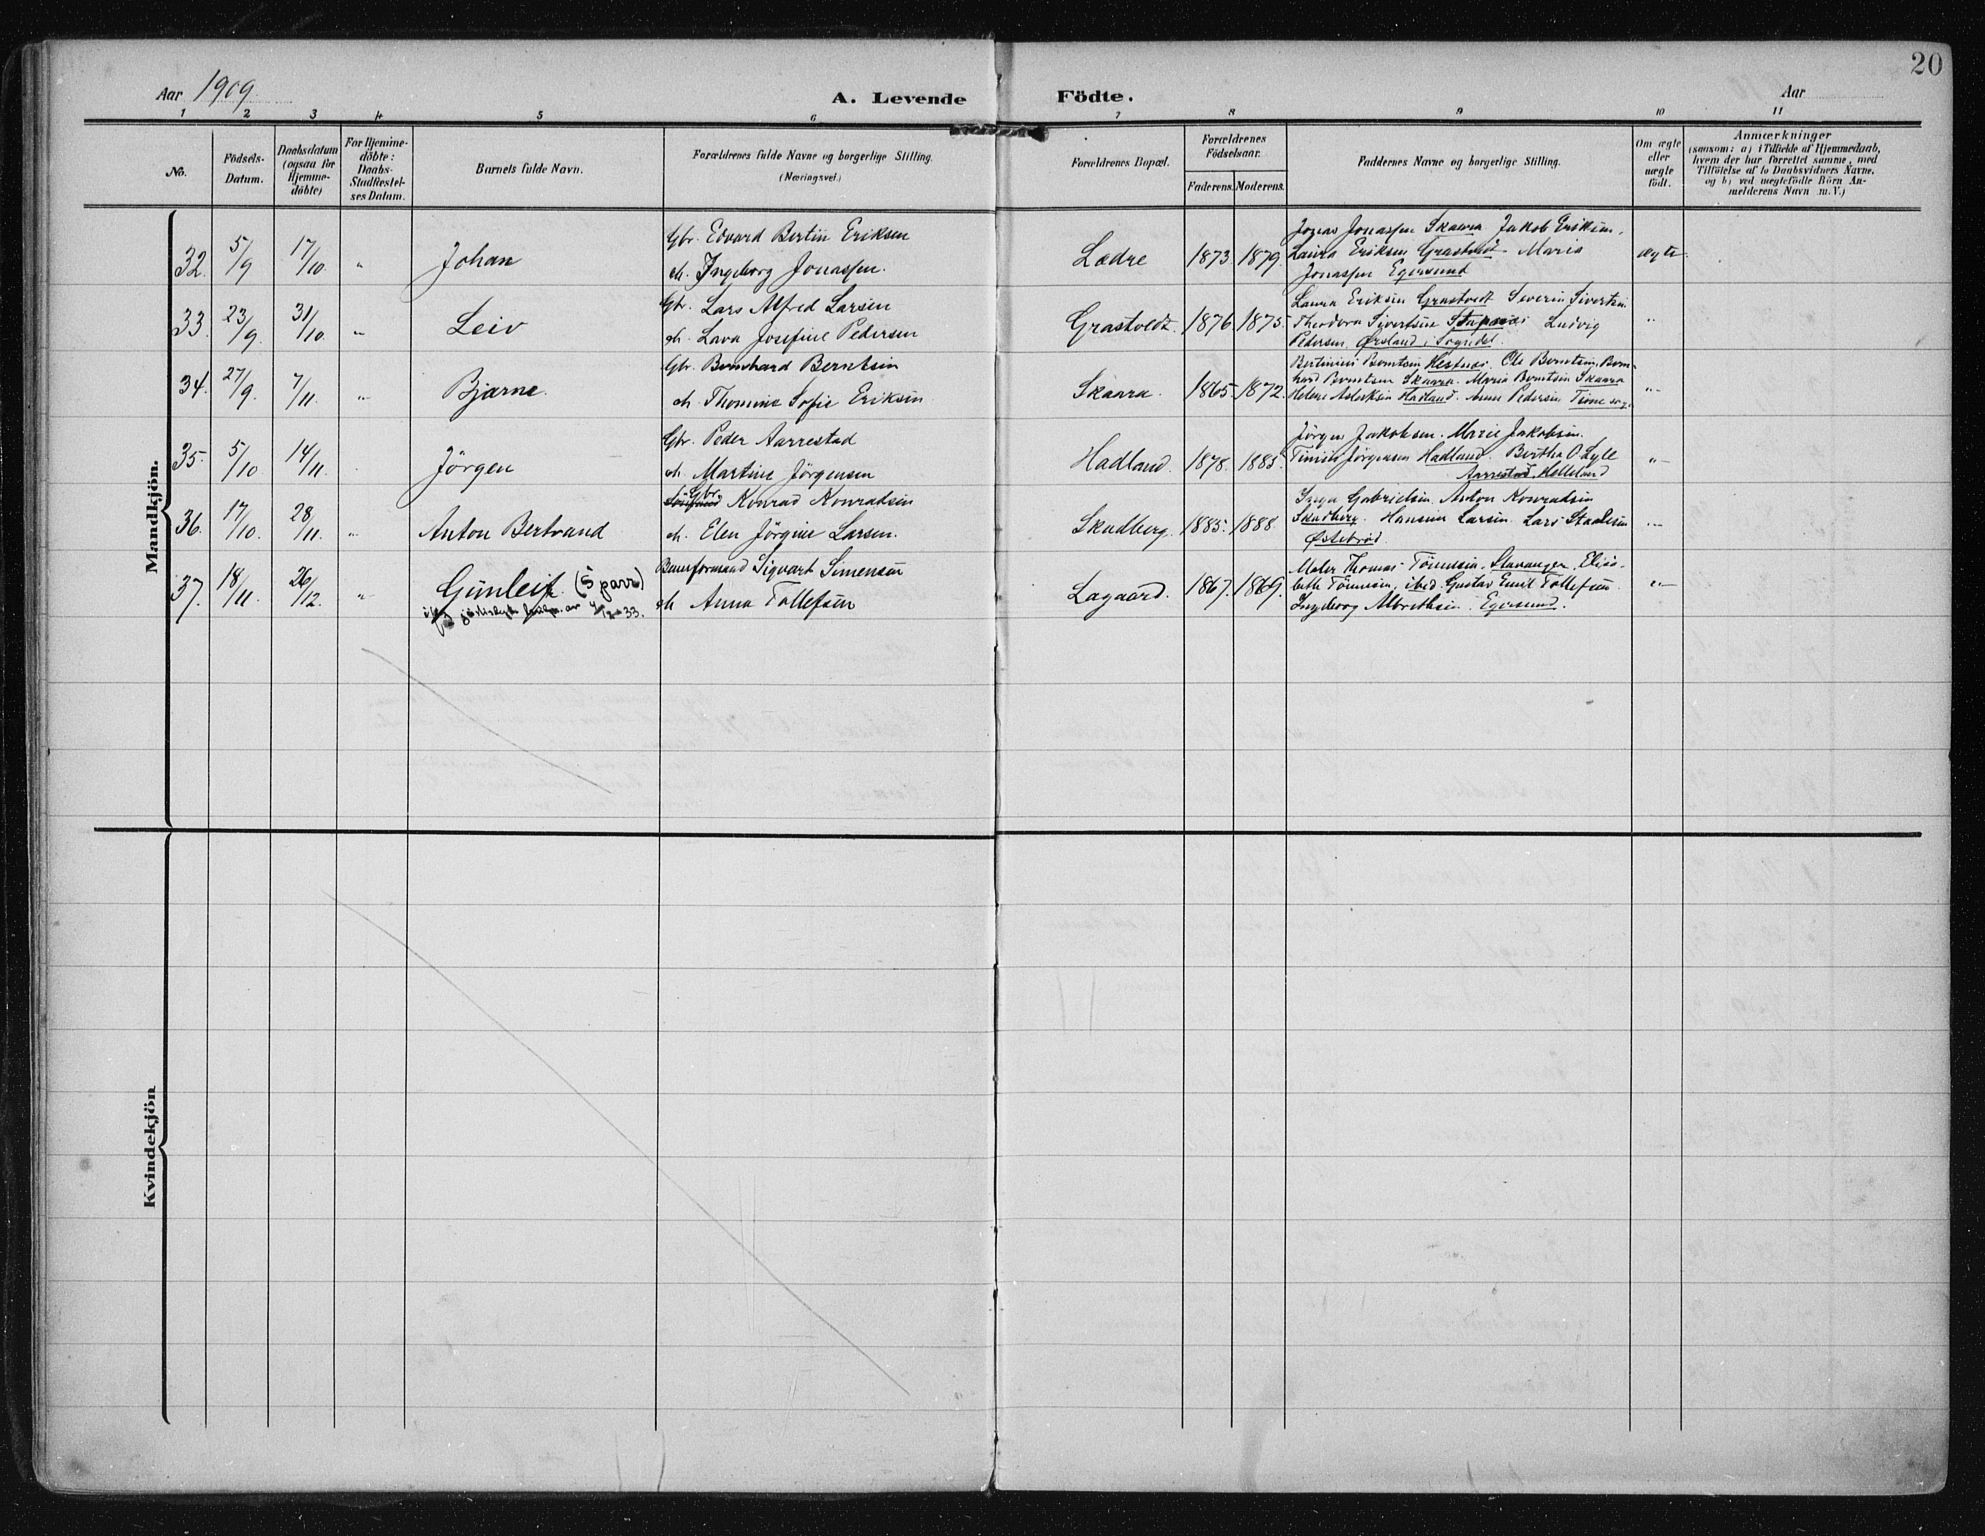 20
Aar 1909
A. Levende Födte.
Aar
1 2 3 4 5 6 7 8 9 10 11
No.
Födsels-Datum.
Daabsdatum (ogsaa for Hjemme-döbte)
For Hjemme-döbte: Daabs-Stadfæstel-ses Datum.
Barnets fulde Navn.
Forældrenes fulde Navne og borgerlige Stilling.
(Næringsvei.)
Forældrenes Bopæl.
Forældrenes Födselsaar.
Faderens. Moderens.
Faddernes Navne og borgerlige Stilling.
Om ægte eller uægte födt.
Anmærkninger
(saasom: a) i Tilfælde af Hjemmedaab,
hvem der har forrettet samme, med
Tilföielse af to Daabsvidners Navne,
og b) ved uægtefödte Börn An-
melderens Navn m. V.)
Mandkjön.
32. 5/9 17/10 " Johan
Gbr. Edvard Bertin Eriksen
h. Ingeborg Jonassen.
Lædre 1873. 1879.
Jonas Jonassen Skaara Jakob Eriksen,
Laura Eriksen Grastvedt Maria
Jonassen Egersund
ægte
33. 23/9 31/10 " Leiv
Gbr. Lars Alfred Larsen
h. Lava Josefine Pedersen
Grastvedt. 1876. 1875.
Laura Eriksen Grastvedt Severin Sivertsen
Theodora Sivertsen Ludvig
Pedersen, Ørsland i Sogndal.
"
34. 27/9 7/11 " Bjarne
Gbr. Bernhard Berntsen
h. Thomine Sofie Eriksen
Skaara. 1865. 1872.
Bertinius Berntsen Hestnes. Ole Berntsen, Bern-
hard Berntsen Skaara. Maria Berntsen Skaara
Helene Hadland. Anne Pedersen
"
35. 5/10 14/11 Jörgen
Gbr. Peder Aarrestad
h. Martine Jörgensen
Hadland. 1878. 1885.
Jörgen Jakobsen. Marie Jakobsen.
Jörgensen Hadland. Bertha O. Lyle
Aarrestad, Helleland
"
36. 17/10 28/11 " Anton Bertrand
Gbr. Konrad Konradsen
h. Elen Jörgine Larsen.
Skadberg. 1885. 1888
Inga Gabrielsen Anton Konradsen
Skadberg. Hansine Larsen. Lars Staalesen
Østebrød.
"
37. 18/11 26/12 " Gunleif (Sparre)
Baneformand Sigvart Simensen
h Anna Tollefsen
Lagaard. 1867. 1869.
Maler Thomas Tönnesen, Stavanger, Elisa-
beth Tönnesen, ibid. Gustav Emil Tollefsen
Ingeborg Albretsen. Egersund.
"
Kvindekjön